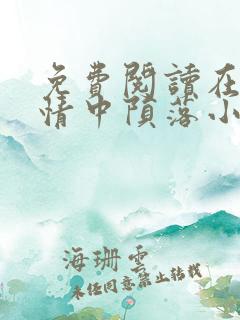 免費閱讀在
情中隕落小
海珊雲
未经同意禁止转载